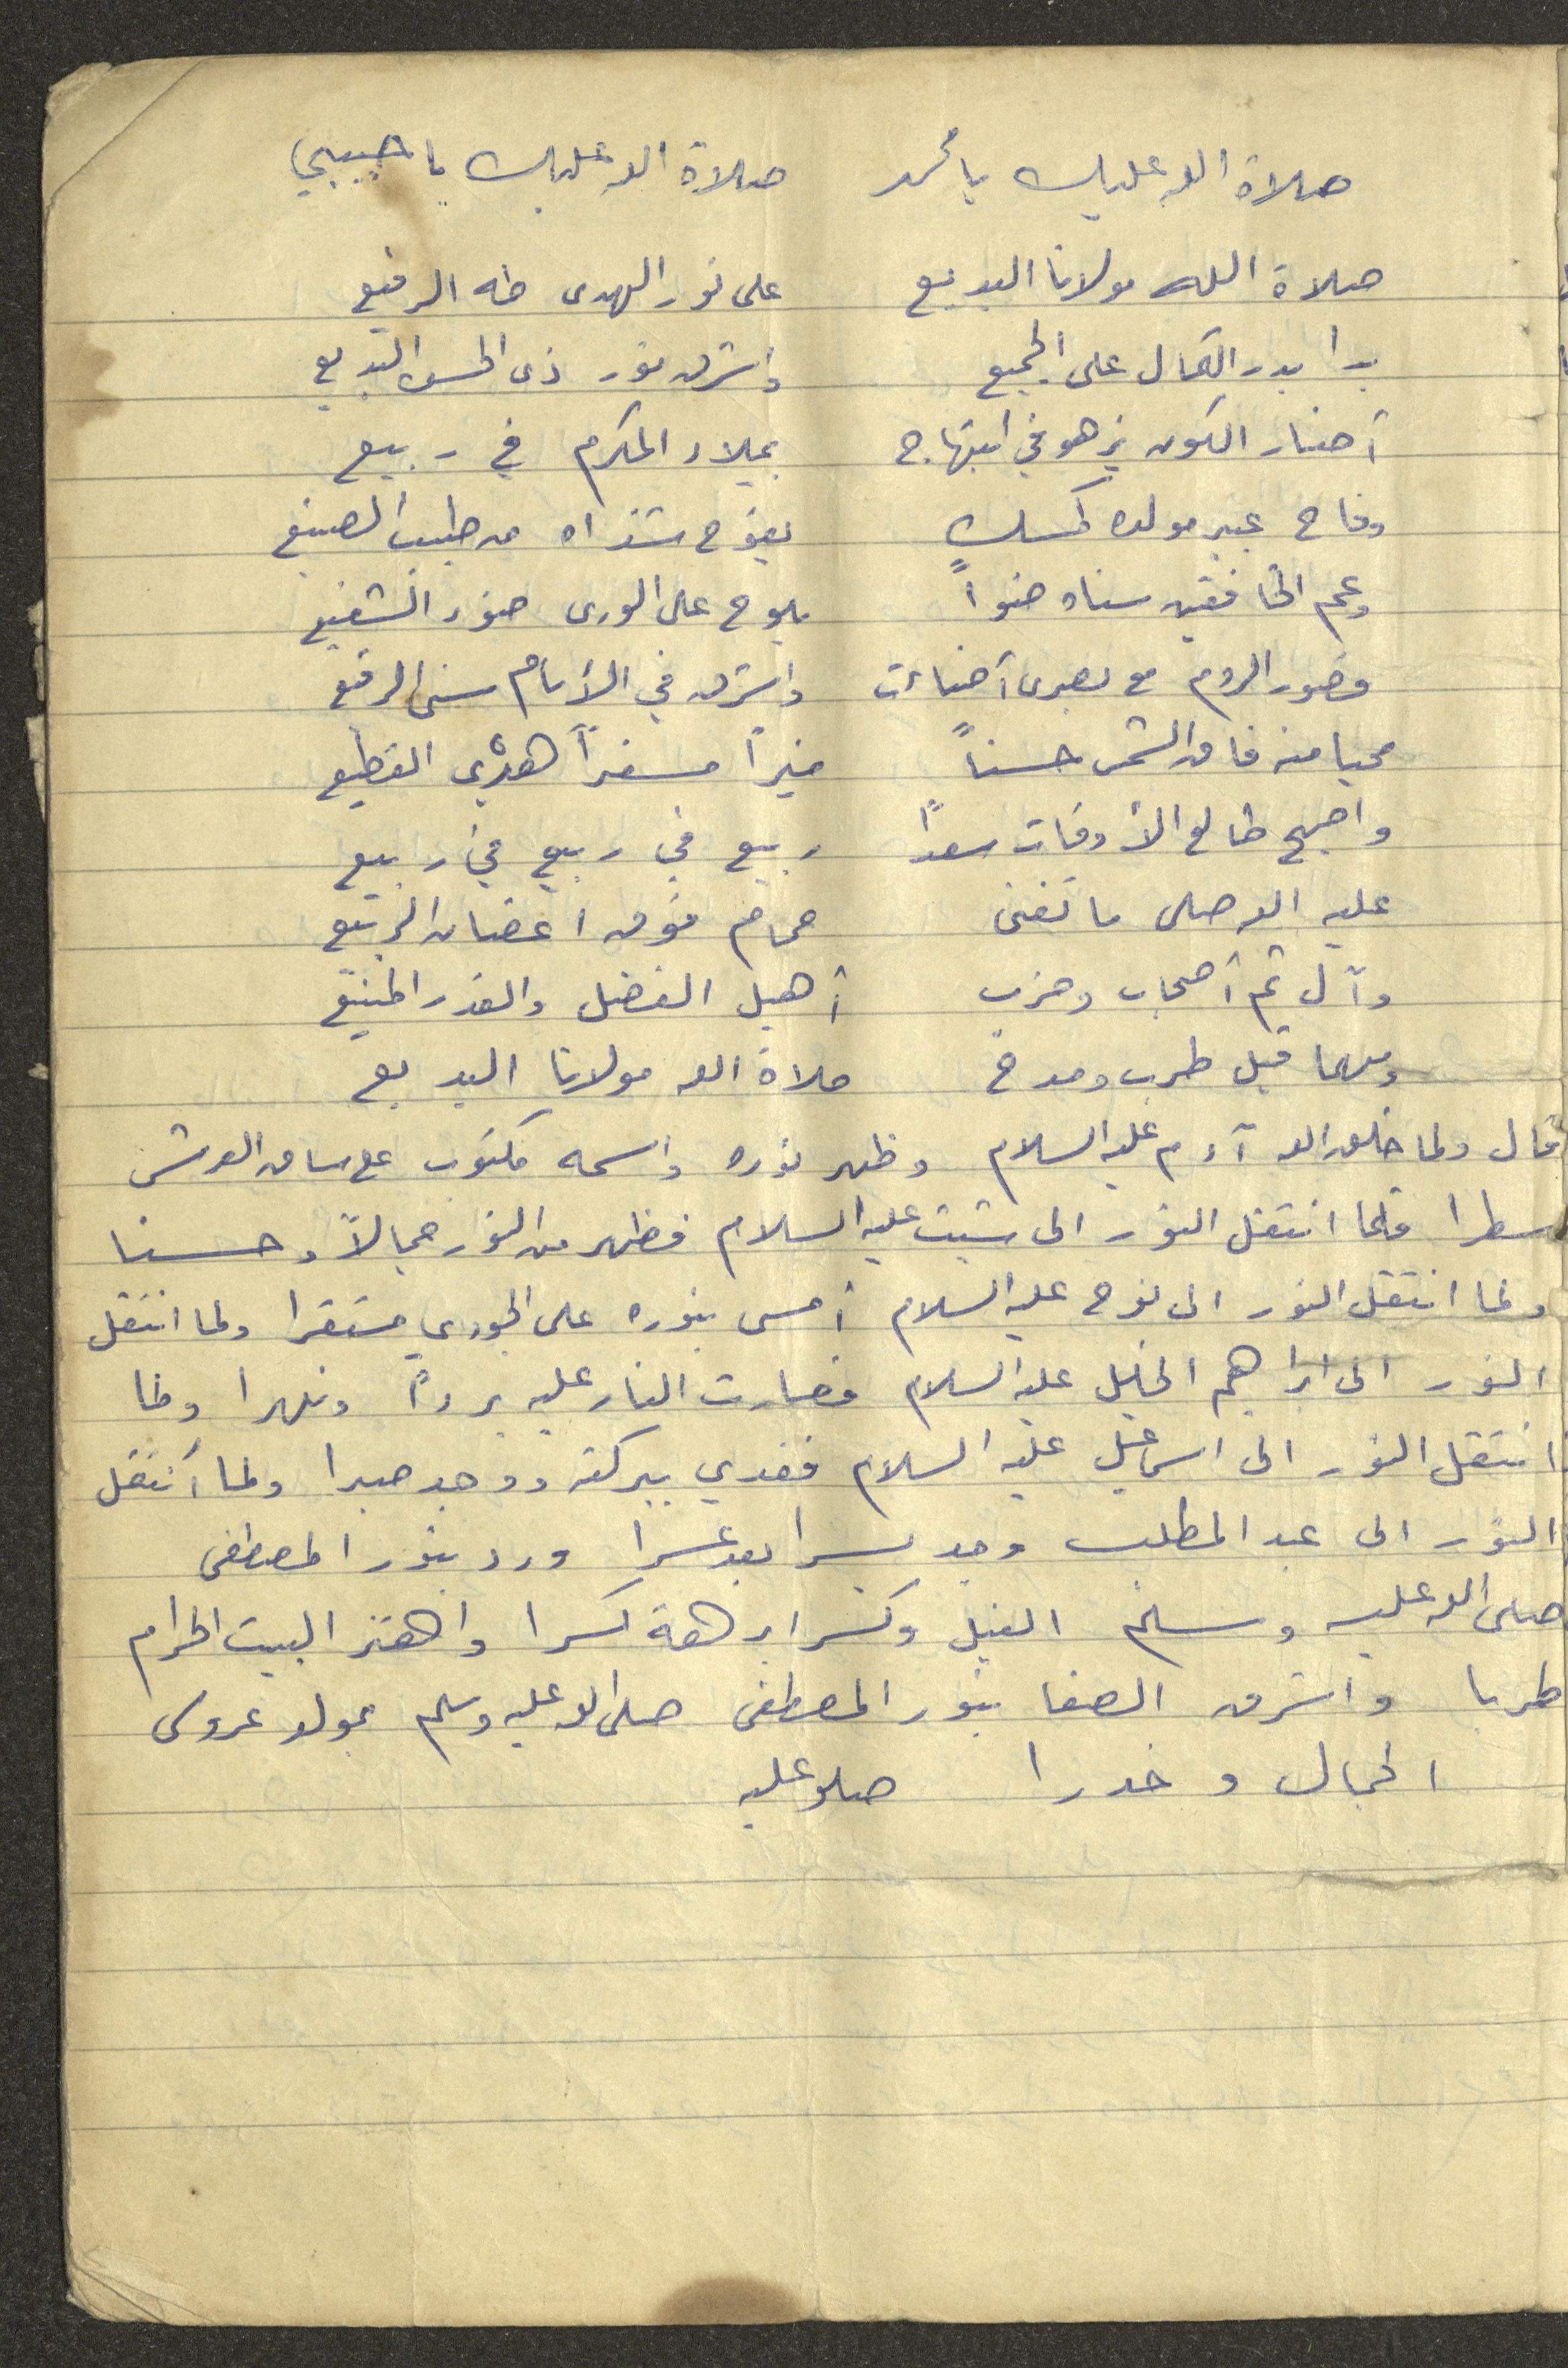 صلاة الله عليك يا محمد صلاة الله عليك يا حبيبي
صلاة الله مولانا البديع على نور الهدى طه الرفيع
بدا بدر الكمال على الجميع واشرق نور ذى الحسن البديع
أضاء الكون يزهو في ابتهاج بميلاد المكرم في ربيع
وفاح عبير مولده كمسك يفوح شذاه من طيب الصنيع
وعم الخافقين سناه ضوءاً يلوح على الورى ضوء الشفيع
قصور الروم مع بصرى أضاءت واشرق في الأنام سنى الرفيع
محيا منه فاق الشمس حسناً منيراً مسفراً هدْي القطيع
واصبح طالع الأوقات سعداً ربيع في ربيع في ربيع
عليه الله صلى ما تغنى حمام فوق اغصان الربيع
وآل ثم أصحاب وحزب أهيل الفضل والقدر المنيع
ومهما قيل طرب ومدح صلاة الله مولانا البديع
قال ولما خلق الله آدم عليه السلام وظهر نوره واسمه مكتوب على ساق العرش
سطرا فلما انتقل النور الى شيت عليه السلام فظهر من النور جمالاً وحسنا
ولما انتقل النور الى نوح عليه السلام أمسى بنوره على الجودي مستقرا ولما انتقل
النور الى ابراهيم الخليل عليه السلام فصارت النار عليه برداً ونهرا ولما
انتقل النور الى اسماعيل عليه السلام ففدي ببركته ووجد صبرا ولما أنتقل
النور الى عبد المطلب وجد يسرا بعد عسرا ورد بنور المصطفى
صلى الله عليه وسلم الفيل وكسر ابرهة كسرا واهتز البيت الحرام
طربا واشرق الصفا بنور المصطفى صلى الله عليه وسلم بمولد عروس
الجمال وخدرا صلو عليه